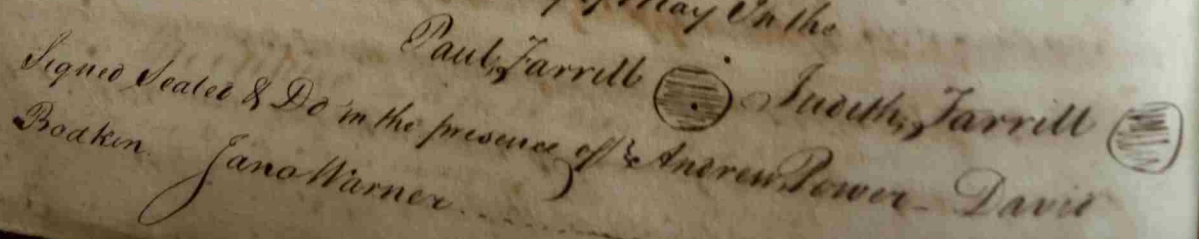 of May In the
Paul, Farrill Judith, Farrill
Signed Sealed & Do in the presence of & Andrew Power - David
Bodkin. Jano Warner